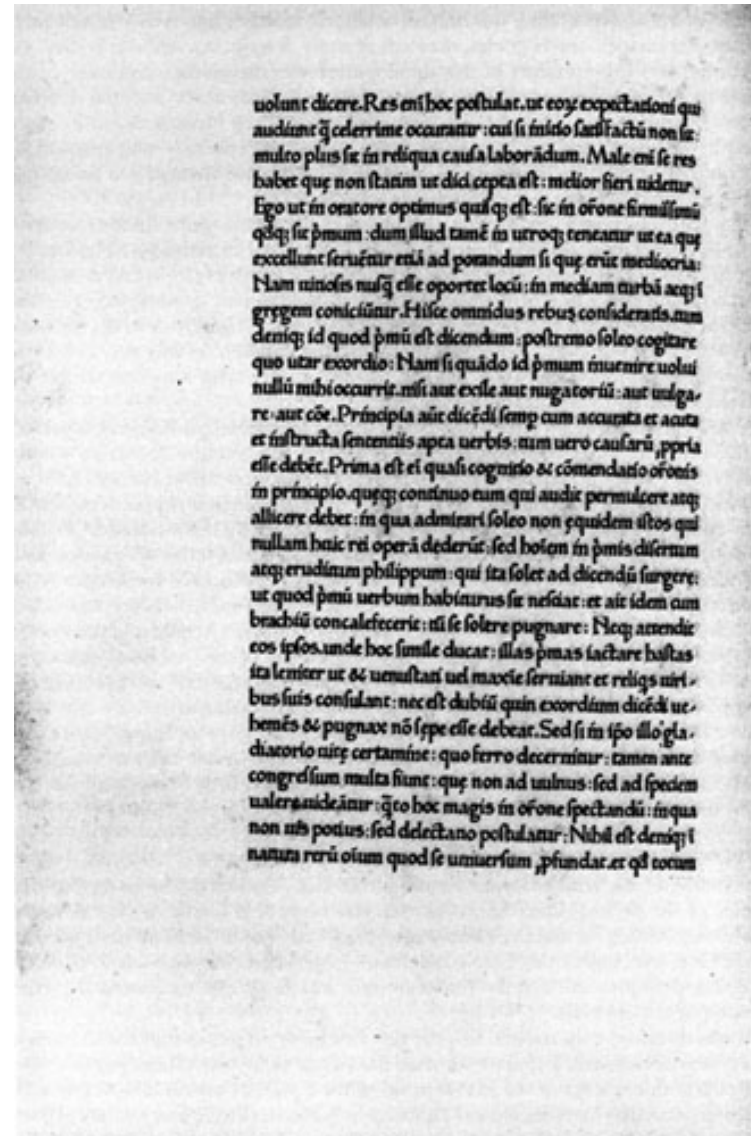 uolunt dicere.Res eni̅ hoc postulat.ut eoꝝ expectationi qui
audiunt q̅ celerrime occuratur:cui si initio satisfactu̅ non sit:
multo plus sit in reliqua causa labora̅dum.Male eni̅ se res
habet quę non statim ut dici cepta est:melior fieri uidetur.
Ego ut in oratore optimus quisqꝫ est:sic in or̅one firmissimu̅
qd̅qꝫ sit p̅mum:dum illud tame̅ in utroqꝫ teneatur ut ea quę
excellunt serue̅tur etia̅ ad perorandum si quę eru̅t mediocria:
Nam uitiosis nusq̅ esse oportet locu̅:in mediam turba̅ atqꝫ i̅
gręgem coniciu̅tur.Hisce omnidus rebus consideratis.tum
deniqꝫ id quod p̅mu̅ est dicendum:postremo soleo cogitare
quo utar exordio:Nam si qua̅do id p̅mum inuenire uolui
nullu̅ mihi occurrit.nisi aut exile aut nugatoriu̅:aut uulga-
re:aut co̅e.Principia au̅t dice̅di semp̱ cum accurata et acuta
et instructa sententiis apta uerbis:tum uero causaru̅ ꝓpria
esse debe̅t.Prima est ei̅ quasi cognitio & co̅mendatio or̅onis
in principio.quęqꝫ continuo eum qui audit permulcere atqꝫ
allicere debet:in qua admirari soleo non ęquidem istos qui
nullam huic rei opera̅ dęderu̅t:sed hoi̅em in p̅mis disertum
atqꝫ eruditum philippum:qui ita solet ad dicendu̅ surgere:
ut quod p̅mu̅ uerbum habiturus sit nesciat:et ait idem cum
brachiu̅ concalefecerit:tu̅ se solere pugnare:Neqꝫ attendit
eos ipsos.unde hoc simile ducat:illas p̅mas iactare hastas
ita leniter ut & uenustati uel maxi̅e seruiant et reliq̅s uiri-
bus suis consulant:nec est dubiu̅ quin exordium dice̅di ue-
heme̅s & pugnax no̅ sępe esse debeat.Sed si in ip̅o illo gla-
diatorio uitę certamine:quo ferro decernitur:tamen ante
congressum multa fiunt:quę non ad uulnus:sed ad speciem
ualere uidea̅tur:q̅to hoc magis in or̅one spectandu̅:in qua
non uis potius:sed delectatio postulatur:Nihil est deniqꝫ i̅
natura reru̅ oi̅um quod se uniuersum ꝓfundat.et qd̅ totum